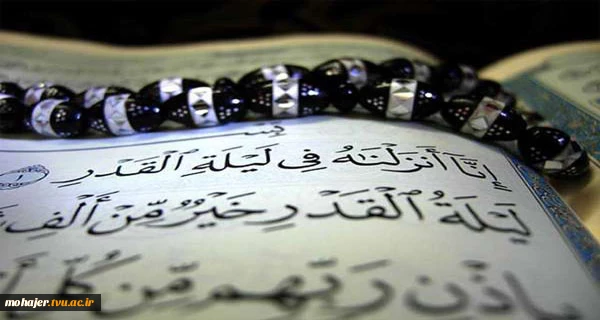 إِنَّآ أَنزَلْنَـٰهُ فِى لَيْلَةِ ٱلْقَدْرِ ١
لَيْلَةُ ٱلْقَدْرِ خَيْرٌ مِّنْ أَلْفِ
بِإِذْنِ رَبِّهِم مِّن كُلِّ
mohajer.tvu.ac.ir